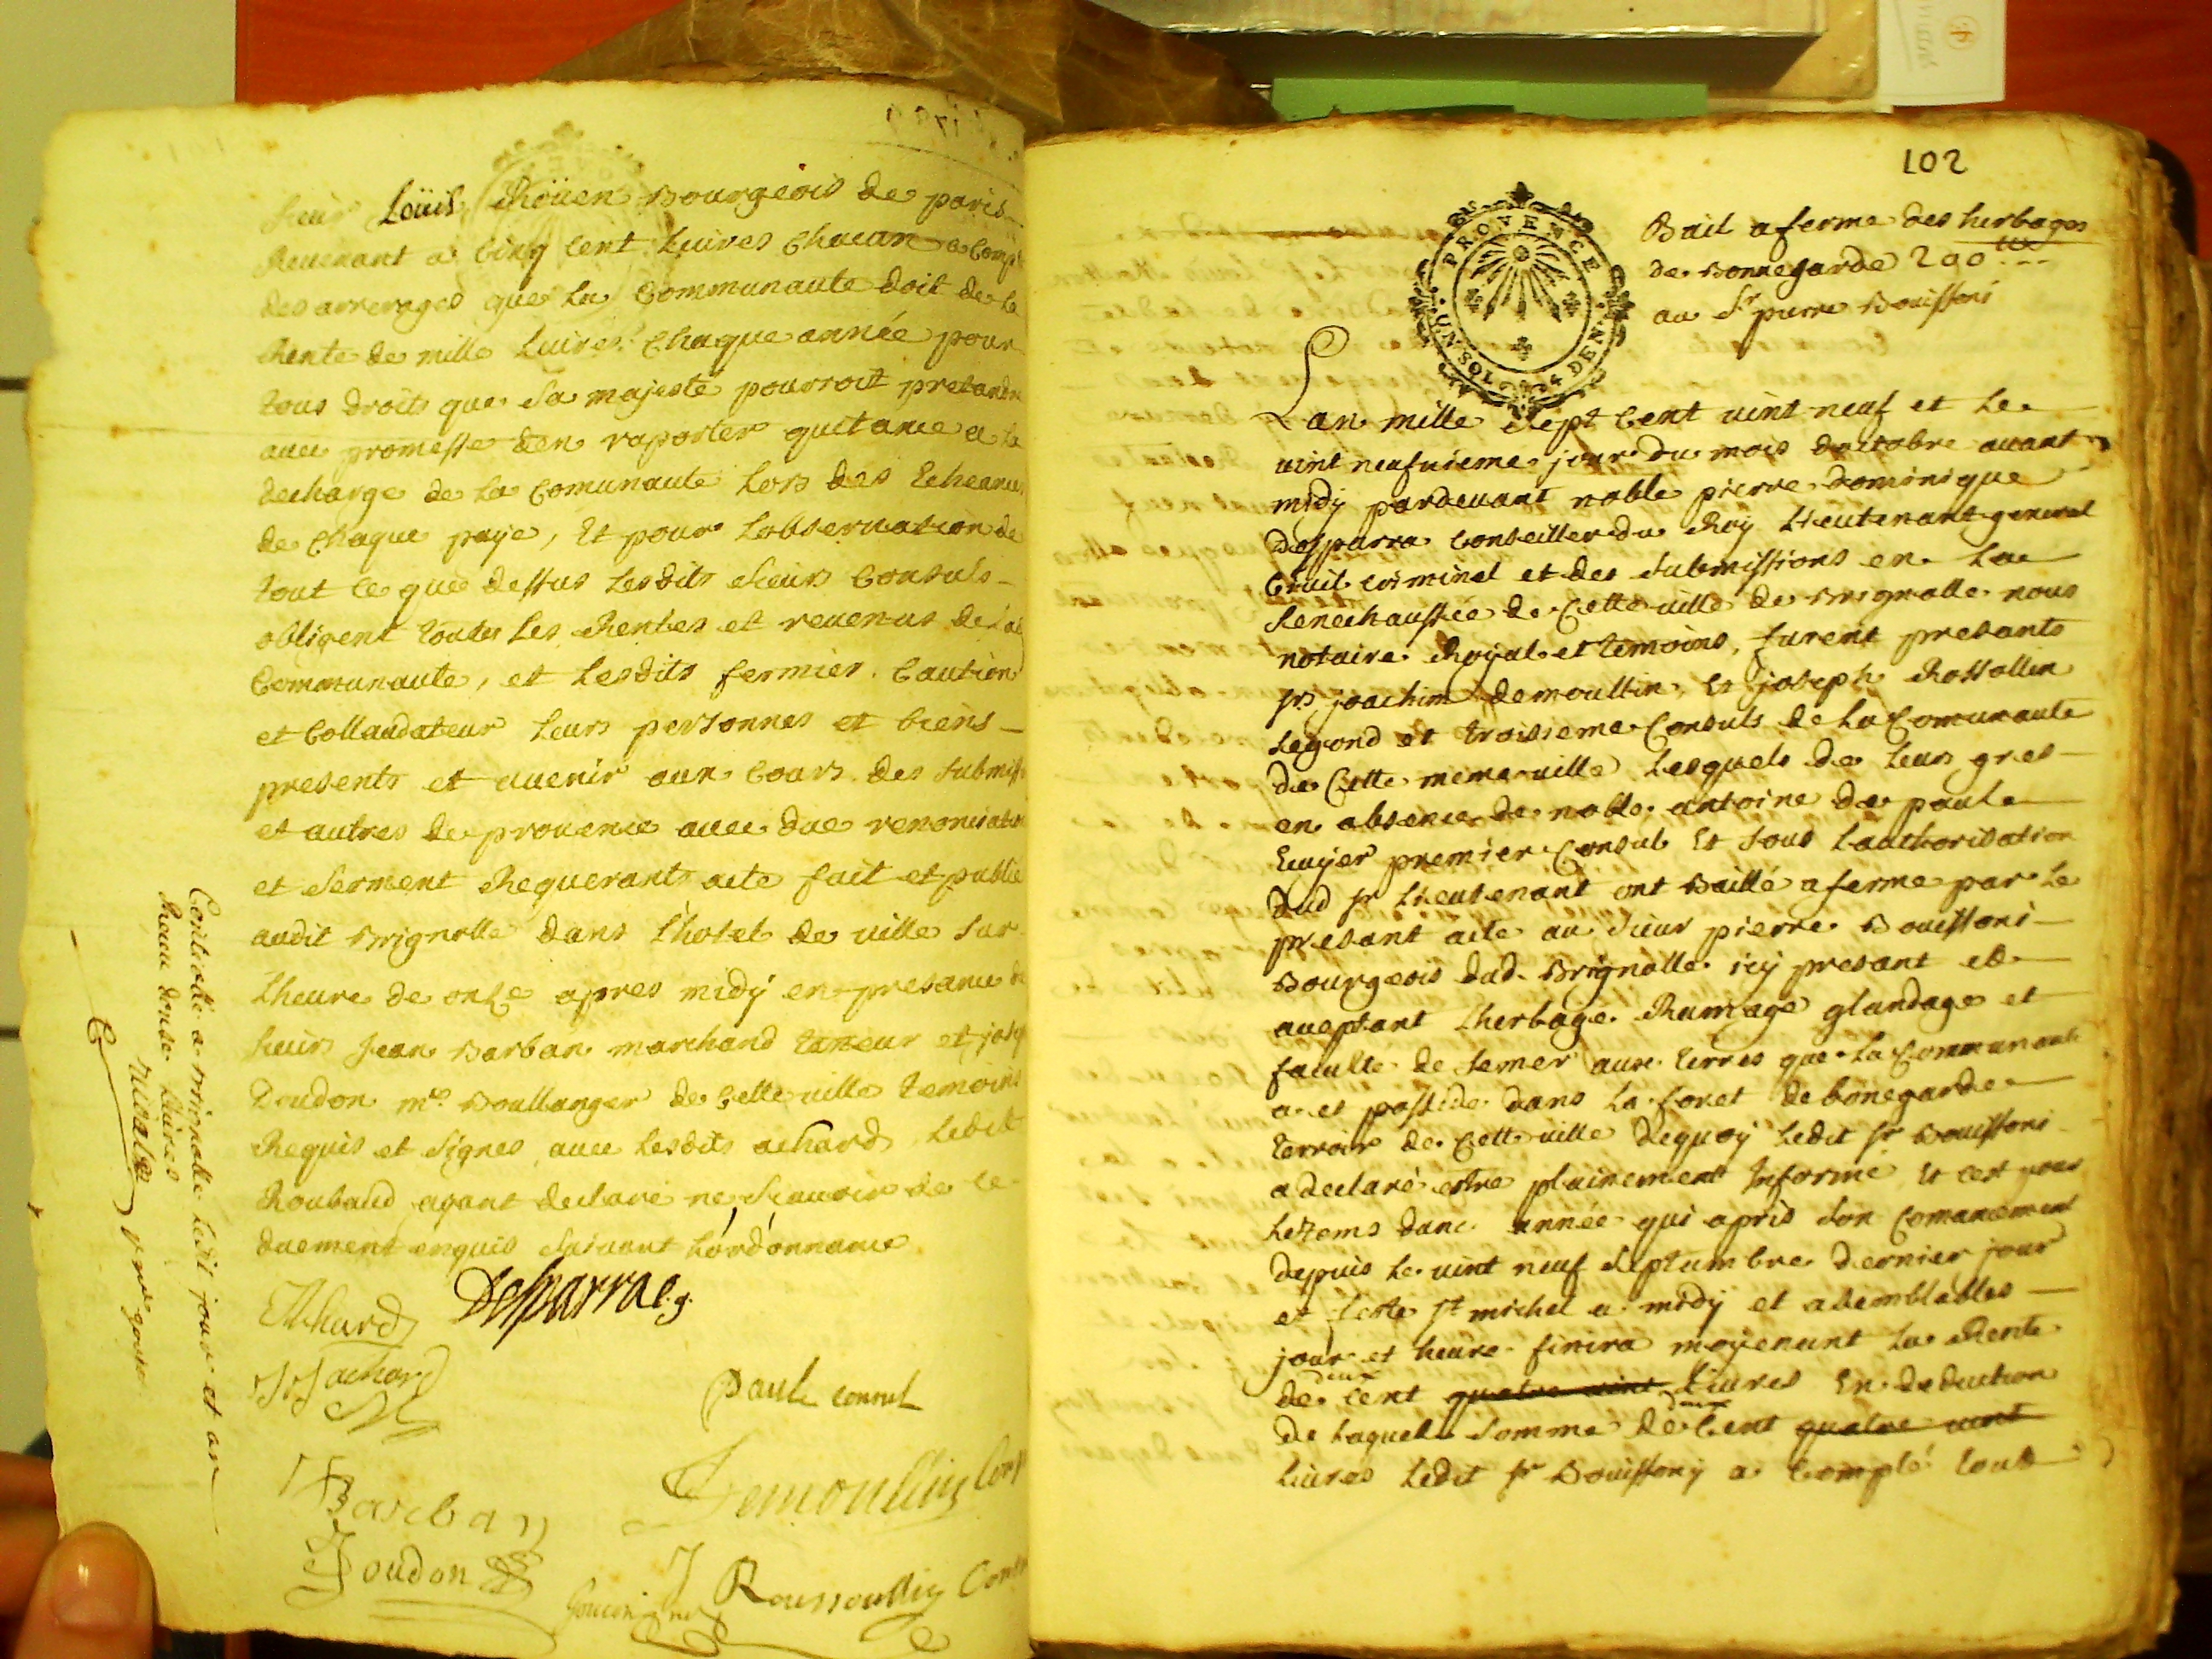 sieur Loüis Roüen Bourgeois de paris
Revenant a cinq cent livres chacun a comp
des arrerages que la communaute doit de la
Rente de mille livres chaque année pour
tous droits que sa majesté pourroit pretandre
avec promesse den raporter quitance a la
decharge de la comunaute lors des echeances
de chaque paye, et pour lobservation de
tout ce que dessus lesdits sieurs consuls
obligent toutes les Rentes et revenus de lad
communaute, et lesdits fermier caution
et collaudateur leurs personnes et biens
presents et avenir aux cours des submiss
et autres de provence avec due renonciation
et serment Requerants acte fait et publié
audit Brignolle dans l'hotel de ville sur
lheure de onze apres midy en presance de
sieurs Jean Barban marchand taneur et josep
Doudon me Boullanger de cette ville temoins
Requis et signes avec lesdits achard ledit
Roubaud ayant declaré ne scavoir de ce
duement enquis suivant lórdónnance
Achard Desparra l. g.
achard
Paule consul
Barban
Demoullin cons
Doudon
J Roussoullin Cons
Controllé a Brignolle ledit jour et an
Receu douse livres
102
PROVENCE
UN SOL 4 DEN.
Bail a ferme des herbages
de Bonnegarde 200
au Sr pierre Bouissoni
Lan mille sept cent vint neuf et le
vint neufvieme jour du mois doctobre avant
midy pardevant noble pierre dominique
Desparra conseiller du Roy lieutenant general
civil criminel et des submissions en la
senechaussée de cette ville de Brignolle nous
notaire Royal et temoins, furent presants
srs joachim demoullin et joseph Rossollin
segond et troisieme consuls de la comunaute
de cette meme ville lesquels de leur gres
en absence de noble antoine de paule
Ecuyer premier consul et sous lauthorisation
dud sr lieutenant ont Baillé a ferme par le
presant acte au sieur pierre Bouissoni
Bourgeois dud. Brignolle icy presant et
aceptant lherbage Ramage glandage et
faculte de semer aux terres que la communaute
a et posside dans la foret de bonegarde
terroir de cette ville dequoy ledit sr Bouissoni
a declaré estre plainement Informé et cest pour
le tems dune année qui a pris son comancement
depuis le vint neuf septambre dernier jour
et feste st michel a midy et a semblables
jour et heure finira moyenant la Rente
de deux cent quatre vint livres En deduction
de laquelle somme de deux cent quatre vint
livres ledit sr Bouissony a compté tout